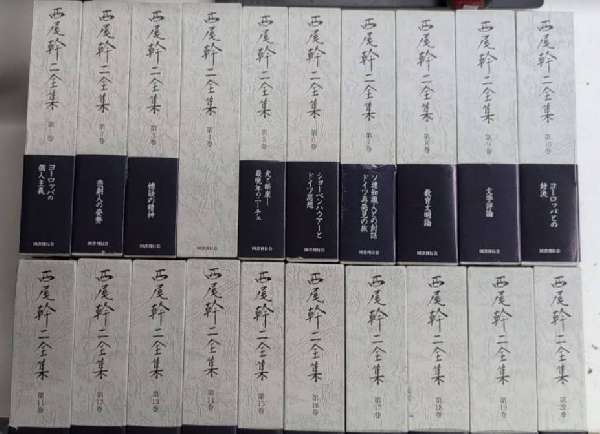 西尾幹二全集
第1巻
ヨーロッパの
個人主義
国書刊行会
西尾幹二全集
第2巻
悲劇人の姿勢
国書刊行会
西尾幹二全集
第3巻
懐疑の精神
国書刊行会
西尾幹二全集
第4巻
西尾幹二全集
第5巻
光と断崖―
最晩年のニーチェ
国書刊行会
西尾幹二全集
第6巻
ショーペンハウアーと
ドイツ思想
国書刊行会
西尾幹二全集
第7巻
ソ連知識人との対話
ドイツ再発見の旅
国書刊行会
西尾幹二全集
第8巻
教育文明論
国書刊行会
西尾幹二全集
第9巻
文学評論
国書刊行会
西尾幹二全集
第10巻
ヨーロッパとの
対決
国書刊行会
西尾幹二全集
第11巻
西尾幹二全集
第12巻
西尾幹二全集
第13巻
西尾幹二全集
第14巻
西尾幹二全集
第15巻
西尾幹二全集
第16巻
西尾幹二全集
第17巻
西尾幹二全集
第18巻
西尾幹二全集
第19巻
西尾幹二全集
第20巻